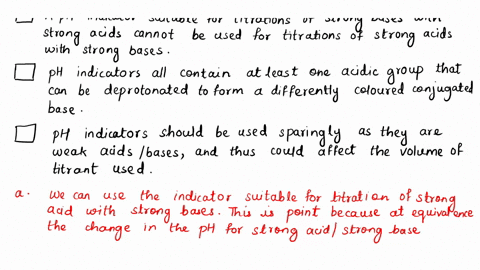 A pH indicator suitable for titrations of strong bases with
strong acids cannot be used for titrations of strong acids
with strong bases.
pH indicators all contain at least one acidic group that
can be deprotonated to form a differently coloured conjugated
base.
pH indicators should be used sparingly as they are
weak acids/bases, and thus could affect the volume of
titrant used.
a. We can use the indicator suitable for titration of strong
acid with strong bases. This is point because at equivalence
the change in the pH for strong acid/strong base